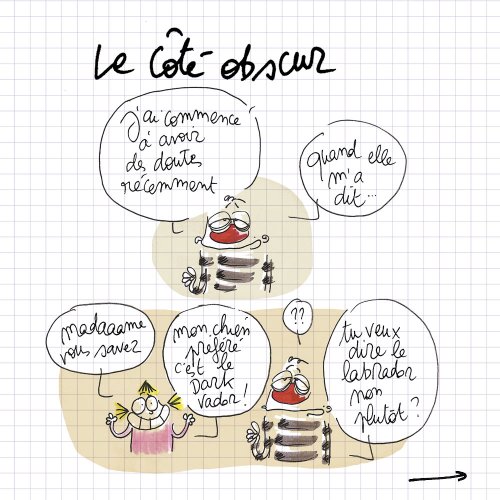 Le côté obscur
j'ai commencé
à avoir
des doutes
récemment
quand elle
m'a
dit...
madaaame
vous savez
mon chien
préféré
c'est le
Dark
vador!
??
tu veux
dire le
labrador
non
plutôt?